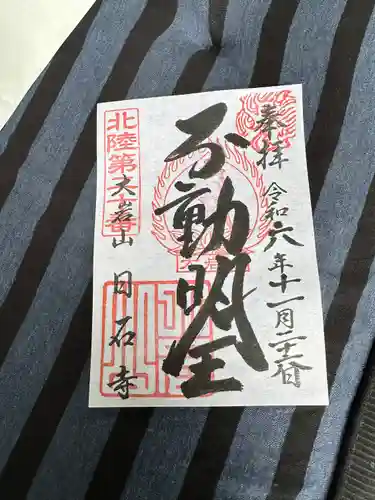 奉拝
令和六年十一月
不動明王
北陸第
大岩山 日石寺